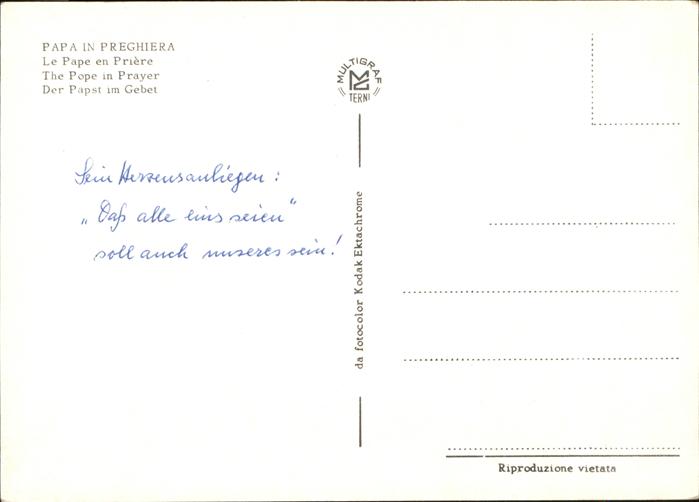 PAPA IN PREGHIERA
Le Pape en Prière
The Pope in Prayer
Der Papst im Gebet
Sein Herzensanliegen:
„Daß alle eins seien“
soll auch unseres sein!
MULTIGRAF
TERNI
da fotocolor Kodak Ektachrome
Riproduzione vietata